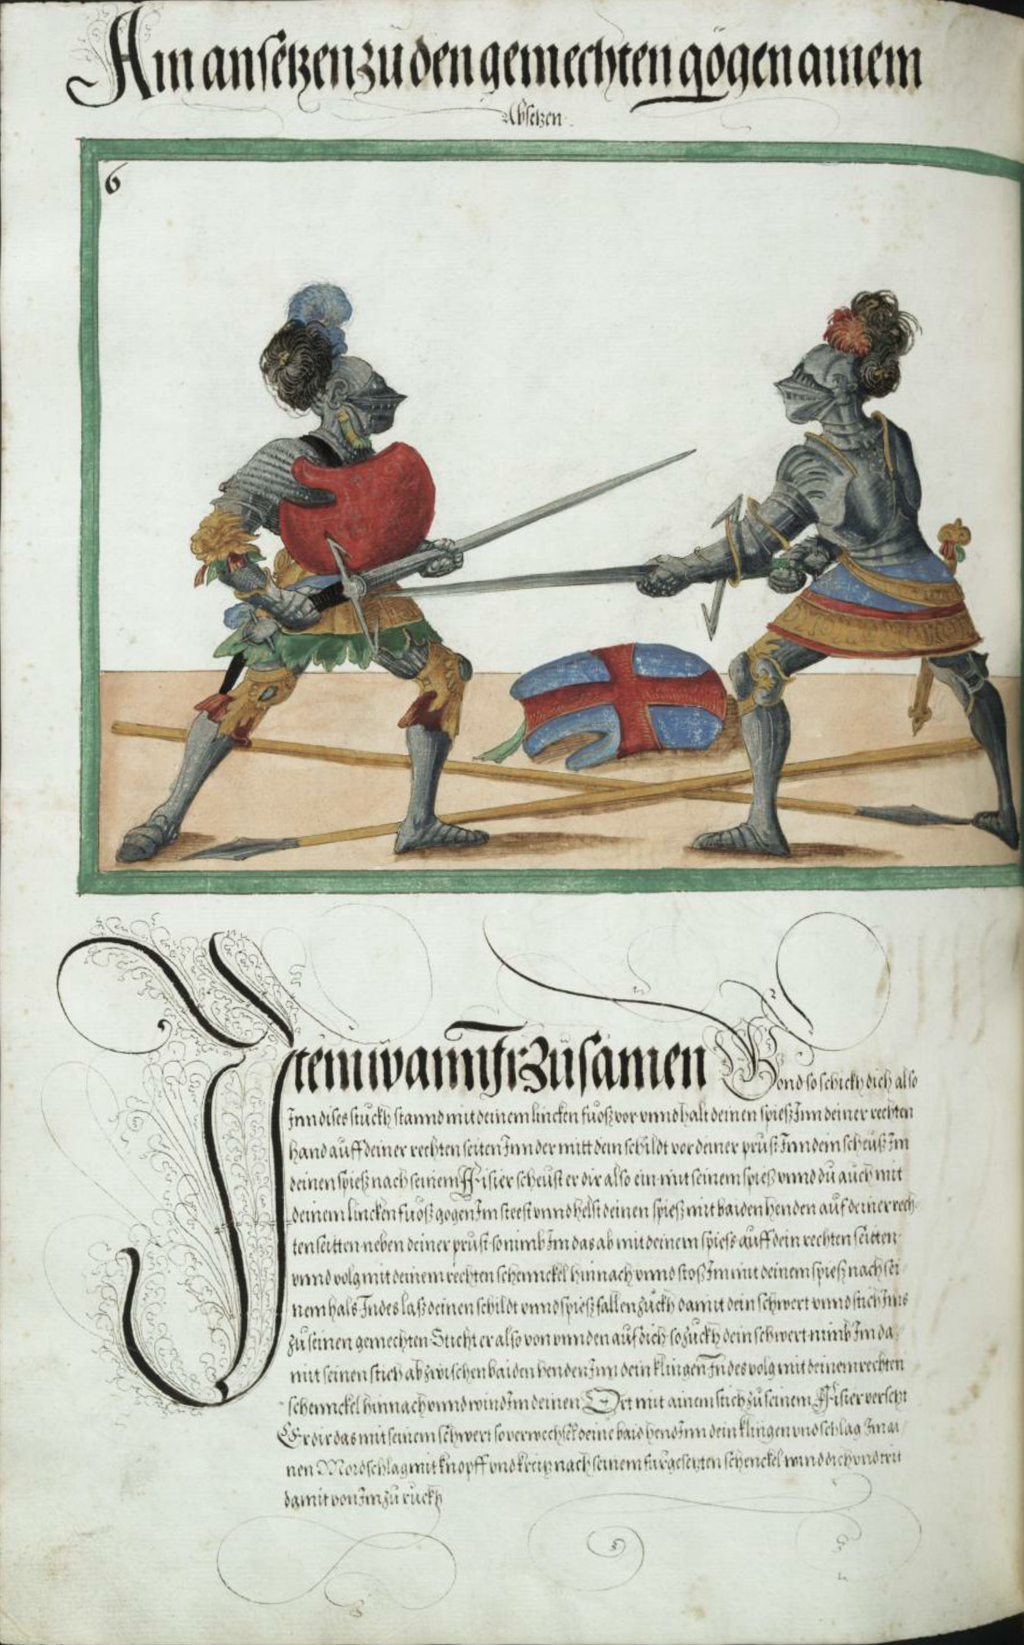 Ain ansetzen zu den gemechten gögen ainem
Absetzen
6
Item wann Ir zusamen Gond so schickh dich also
Inn dises stuckh stannd mit deinem lincken fuosz vor vnnd halt deinen spiesz Inn deiner rechten
hand auff deiner rechten seiten Inn der mitt dein schildt vor deiner prust Inn dem scheusz Im
deinen spiesz nach seinem Fisier scheust er dir also ein mit seinem spiesz vnnd du auch mit
deinem lincken fuosz gögen Im steest vnnd helst deinen spiesz mit baiden henden auf deiner rech
ten seitten neben deiner prust so nimb Im das ab mit deinem spiess auff dein rechten seitten
vnnd volg mit deinem rechten schennckel hinnach vnnd stosz Im mit deinem spiesz nach sei
nem hals Indes lasz deinen schildt vnnd spiesz fallen zuckh damit dein schwert vnnd stich Im
zu seinen gemechten Sticht er also von vnnden auf dich so zuckh dein schwert nimb Im da
mit seinen stich ab zwischen baiden henden Inn dein klingen Indes volg mit deinem rechten
schennckel hinnach vnnd wind Im deinen Ort mit ainem stich zu seinem Fisier versetzt
Er dir das mit seinem schwert so verwechsel deine baid hend Inn dein klingen vnd schlag Im ai
nen Mordschlag mit knopff vnd kreitz nach seinem fürgesetzten schenckel wind dich vnd trit
damit von Im zu ruckh